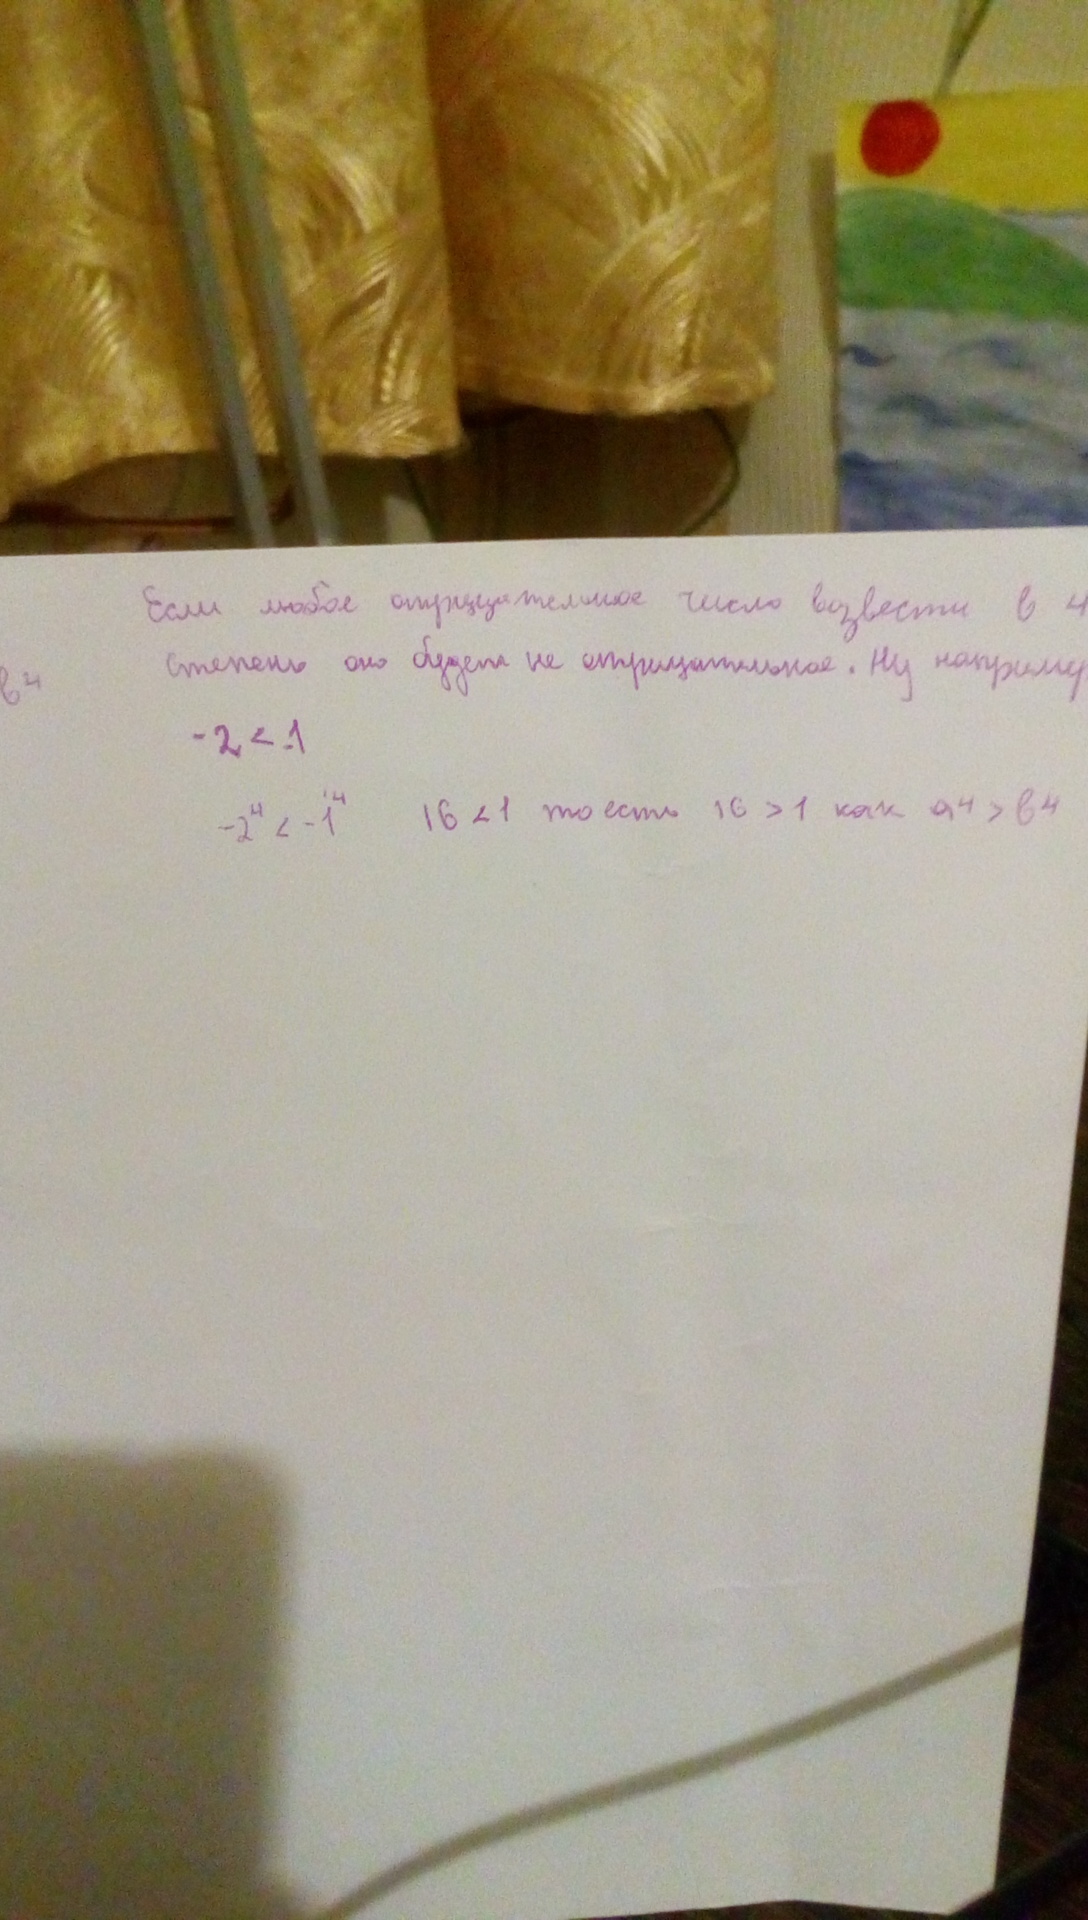 Если любое отрицательное число возвести в 4
степень оно будет не отрицательное. Ну например
в⁴
-2 < -1
-2⁴ < -1⁴ 16 < 1 то есть 16 > 1 как a⁴ > в⁴